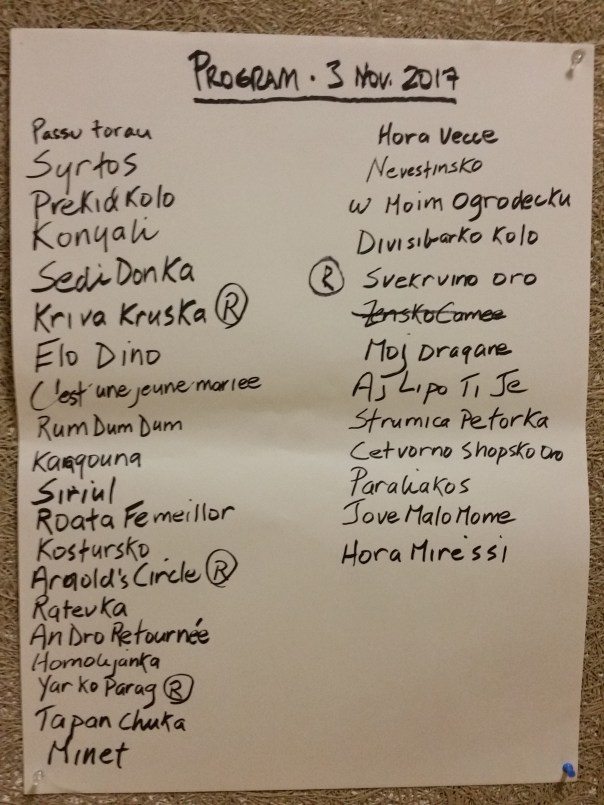 PROGRAM . 3 NOV. 2017
Passu torau
Syrtos
Prekid Kolo
Konyali
Sedi Donka
Kriva Kruska R
Elo Dino
C'est une jeune mariee
Rum Dum Dum
Karagouna
Siriul
Roata Femeillor
Kostursko
Arnold's Circle R
Ratevka
An Dro Retournée
Homoljanka
Yarko Parag R
Tapan Chuka
Minet
Hora Vecce
Nevestinsko
W Moim Ogrodecku
Divisibarko Kolo
R Svekrvino oro
Zensko Camce
Moj Dragane
Aj Lipo Ti Je
Strumica Petorka
Cetvorno Shopsko oro
Paraliakos
Jove Malo Mome
Hora Miresii